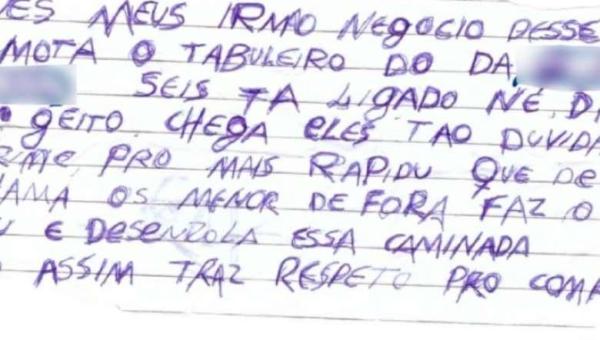 ES MEUS IRMÃO NEGOCIO DESSE
MOTA O TABULEIRO DO DA
SEIS TA LIGADO NÉ D
GEITO CHEGA ELES TAO DUVIDA
PRO MAIS RAPIDU QUE DE
AMA OS MENOR DE FORA FAZ O
E DESENROLA ESSA CAMINADA
ASSIM TRAZ RESPETO PRO COMA